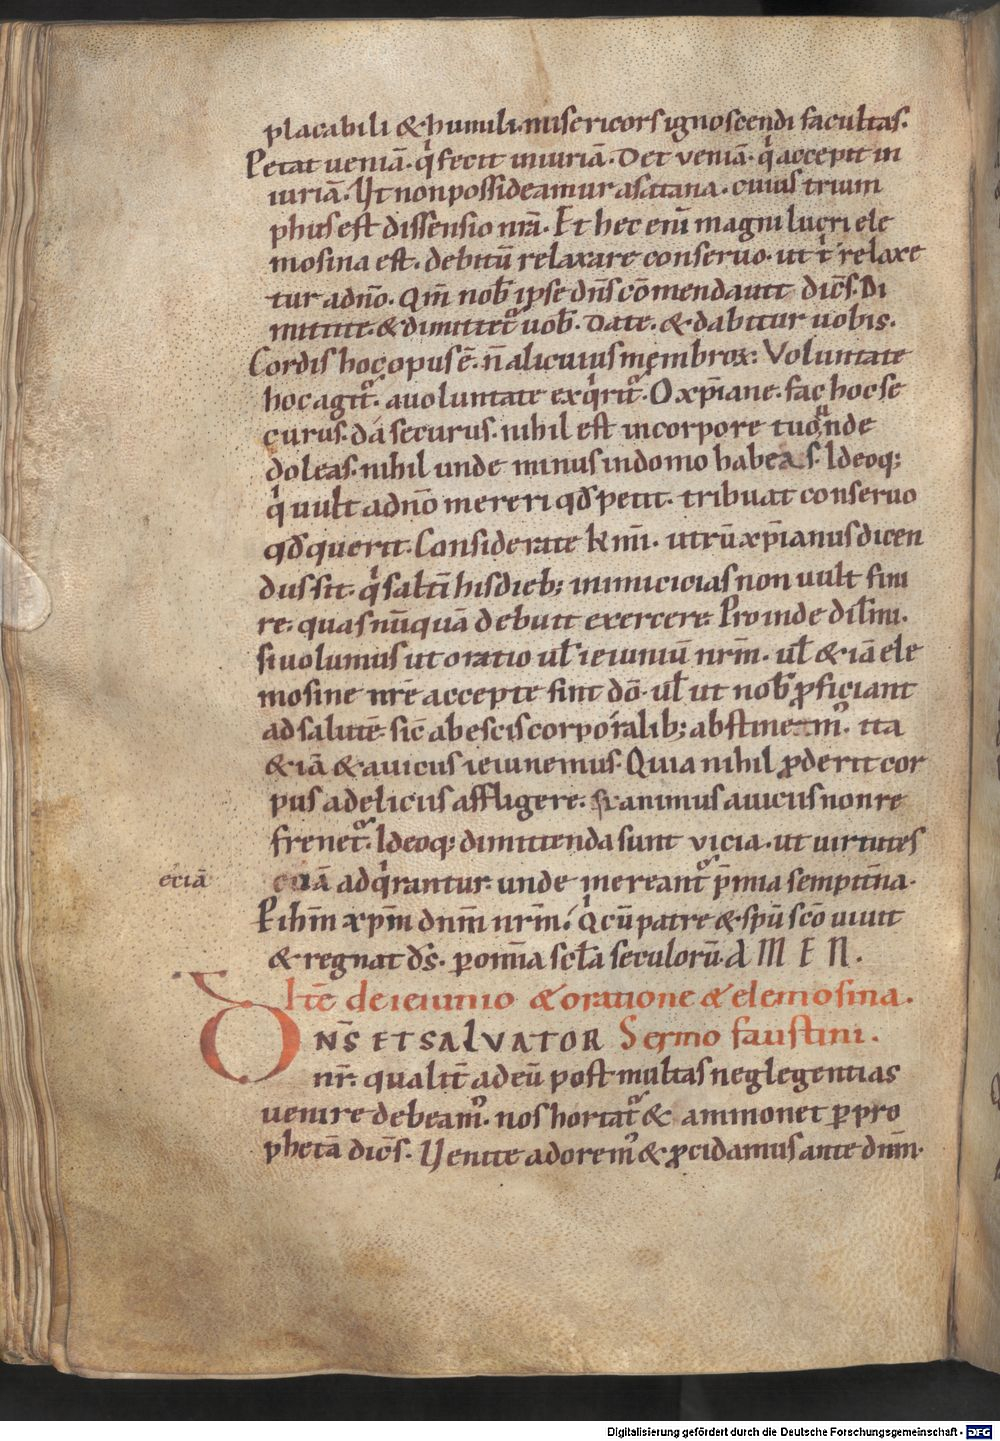 placabili & humili. misericors ignoscendi facultas.
Petat ueniā. q̇ fecit iniuriā. Det veniā. q̇ accepit in
iuriā. Ut non possideamur a satana. cuius trium
phus est dissensio nr̄a. Et hec eni̅ magni lucri ele
mosina est. debitū relaxare conseruo. ut t' relaxe
tur a dn̄o. Qm̄ nob̄ ipse dn̄s cōmendauit dic̄s. Di
mittite. & dimittet᷑ uob̄. Date. & dabitur uobis.
Cordis hoc opus ē. n̄ alicuius membroꝝ: Voluntate
hoc agit᷑. a uoluntate exq̇rit᷑. O xp̄iane. fac hoc se
curus. da securus. nihil est in corpore tuo unde
doleas. nihil unde minus in domo habeas. Ideoq;
q̇ uult a dn̄o mereri qđ petit. tribuat conseruo
qđ querit. Considerate k̄mi. utrū xp̄ianus dicen
dus sit. q̇ saltī his dieb; inimicicias non uult fini
re. quas nūquā debuit exercere. Proinde dil̄mi.
si uolumus ut oratio ul̄ ieiuniū nr̄m. ul̄ & iā ele
mosine nr̄e accepte sint dō. ul̄ ut nob̄ ꝓficiant
ad salutē. sic̄ ab escis corporalib; abstineam᷒. ita
& iā & a uicus ieiunemus. Quia nihil ꝓderit cor
pus a delicus affligere. si animus a uicus non re
frenet᷑. Ideoq; dimittenda sunt vicia. ut uirtutes
eciā
adq̇rantur. unde mereant᷑ p̄mia sempit̄na.
P ihm̄ xpm̄ dnm̄ nrm̄. Q̇ cū patre & spū scō uiuit
& regnat ds̄. p om̄ia scl̄a seculorū. A M E N.
Itē de ieiunio & oratione & elemosina.
Dn̄s ET SALVATOR Sermo faustini.
nr̄. qualit̄ ad eū post multas neglegentias
uenire debeam᷒. nos hortat᷑ & ammonet p pro
phetā dic̄s. Uenite adorem᷒ & ꝓcidamus ante dnm̄.
Digitalisierung gefördert durch die Deutsche Forschungsgemeinschaft - DFG